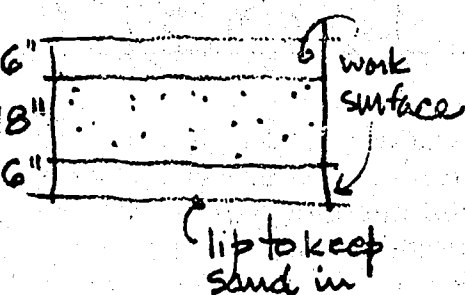 6"
work
surface
8"
6"
lip to keep
sand in